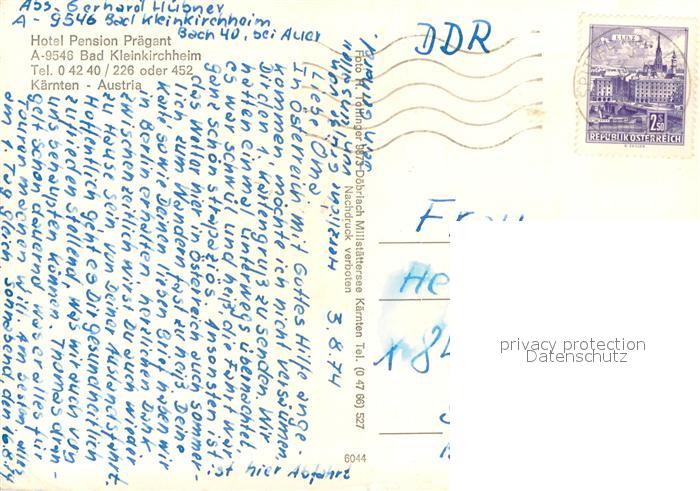 Abs. Gerhard Hübner
A-9546 Bad Kleinkirchheim
Bach 40, bei Auer
Hotel Pension Prägant
A-9546 Bad Kleinkirchheim
Tel. 0 42 40 / 226 oder 452
Kärnten - Austria
DDR
LINZ
2.50
REPUBLIK ÖSTERREICH
3.8.74
Liebe Oma!
In Österreich mit Gottes Hilfe ange-
kommen, möchte ich nicht versäumen
Dir den 1. Kartengruß zu senden. Wir
hatten einmal unterwegs übernachtet
es war schwül und heiß die Fahrt war
ganz schön strapaziös. Ansonsten ist
das Wetter hier in Österreich auch sommer-
lich zum Wandern fast zu heiß. Deine
Karte sowie Deinen lieben Brief haben wir
in Berlin erhalten herzlichen Dank
zwischenzeitlich wirst Du auch wieder
zu Hause sein, von Deiner Auslandsfahrt.
Hoffentlich geht es Dir gesundheitlich
zufrieden stellend, was wir auch von
uns behaupten können. Thomas drän-
gelt schon dauernd was er alles für
Touren machen will. Am besten alle
am 1. Tag gleich. Sonnabend, den 16.8.74
ist hier Abfahrt
Foto H. Tollinger 9873 Döbriach Millstättersee Kärnten Tel. (0 47 66) 527
Nachdruck verboten
6044
Frau
He
x 84
privacy protection
Datenschutz